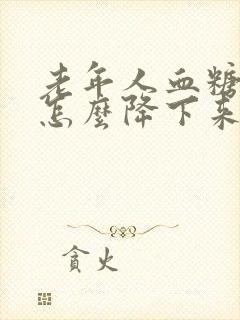 老年人血糖
怎麼降下來
貪火